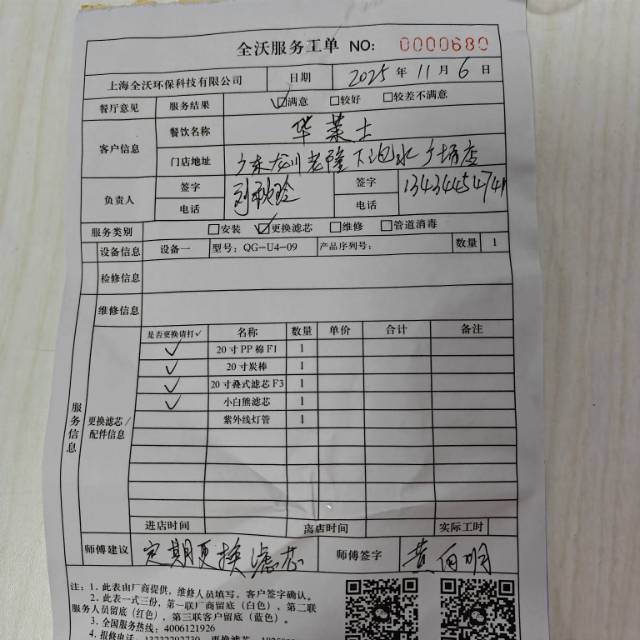 全沃服务工单 NO: 0000680
上海全沃环保科技有限公司 日期 2025 年 11 月 6 日
餐厅意见 服务结果 ☑满意 □较好 □较差不满意
客户信息 餐饮名称 华莱士
门店地址 广东龙川老隆下泡水广场店
负责人 签字 签字 13434454741
电话 电话
服务类别 □安装 ☑更换滤芯 □维修 □管道消毒
服务信息
设备信息 设备一 型号: QG-U4-09 产品序列号: 数量 1
检修信息
维修信息
更换滤芯/配件信息
是否更换请打✓ 名称 数量 单价 合计 备注
✓ 20寸PP棉F1 1
✓ 20寸炭棒 1
✓ 20寸叠式滤芯F3 1
✓ 小白熊滤芯 1
紫外线灯管 1
进店时间 离店时间 实际工时
师傅建议 定期更换滤芯 师傅签字 黄伯明
注: 1. 此表由厂商提供, 维修人员填写, 客户签字确认。
2. 此表一式三份, 第一联厂商留底 (白色), 第二联
服务人员留底 (红色), 第三联客户留底 (蓝色)。
3. 全国服务热线: 4006121926
4. 报修电话: